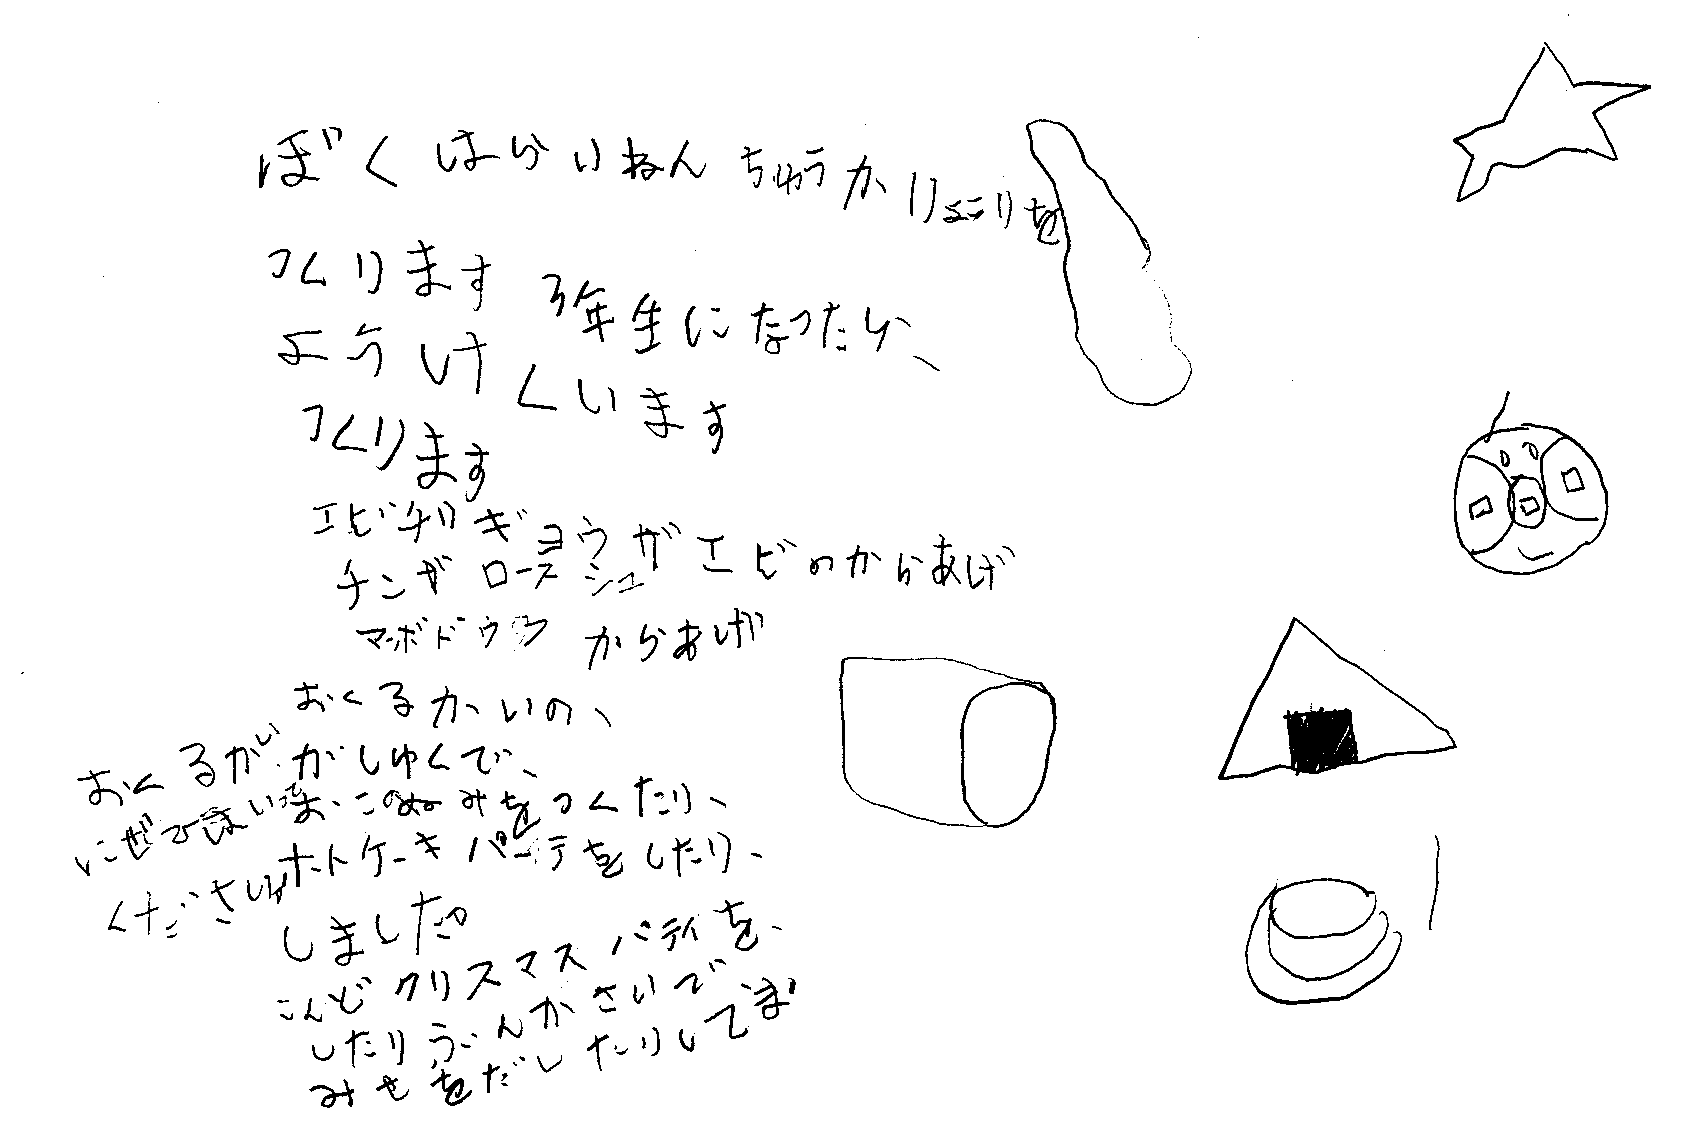 ぼくはらいねんちゅうかりょこりを
つくります 3年生になったら、
ようけくいます
つくります
エビヂリギョウザエビのからあげ
チンヂロースシュ
マッボドウフ からあげ
おくるかいの、
がしゅくで、
お、このぬみをつくたり、
ホトケーキパーテをしたり、
しました。
こんどクリスマスパティを、
したりぶんかさいで、
みせをだしたりしてま
おくるがい
にぜてまいって
くださいね